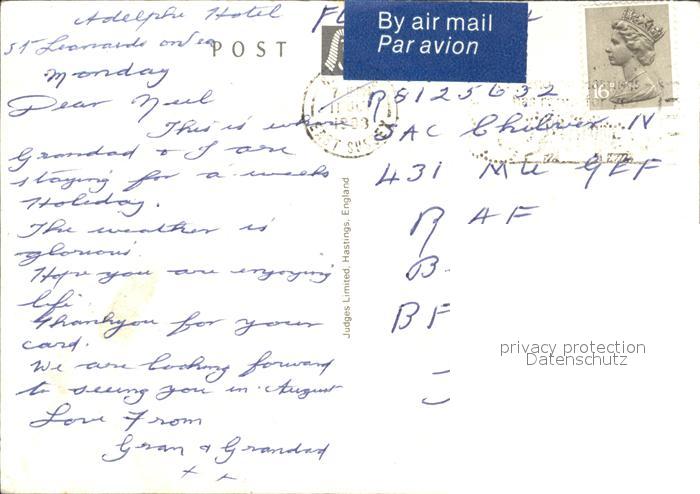 Adelphi Hotel
St Leonards on Sea
POST
Monday
Dear Neil
This is where
Grandad & I are
staying for a weeks
Holiday.
The weather is
glorious.
Hope you are enjoying
life.
Thankyou for your
card.
We are looking forward
to seeing you in August
Love From
Gran & Grandad
x x
Judges Limited, Hastings, England
By air mail
Par avion
16
1983
SAC Chilver N
431 MU GEF
R AF
B
BF
privacy protection
Datenschutz